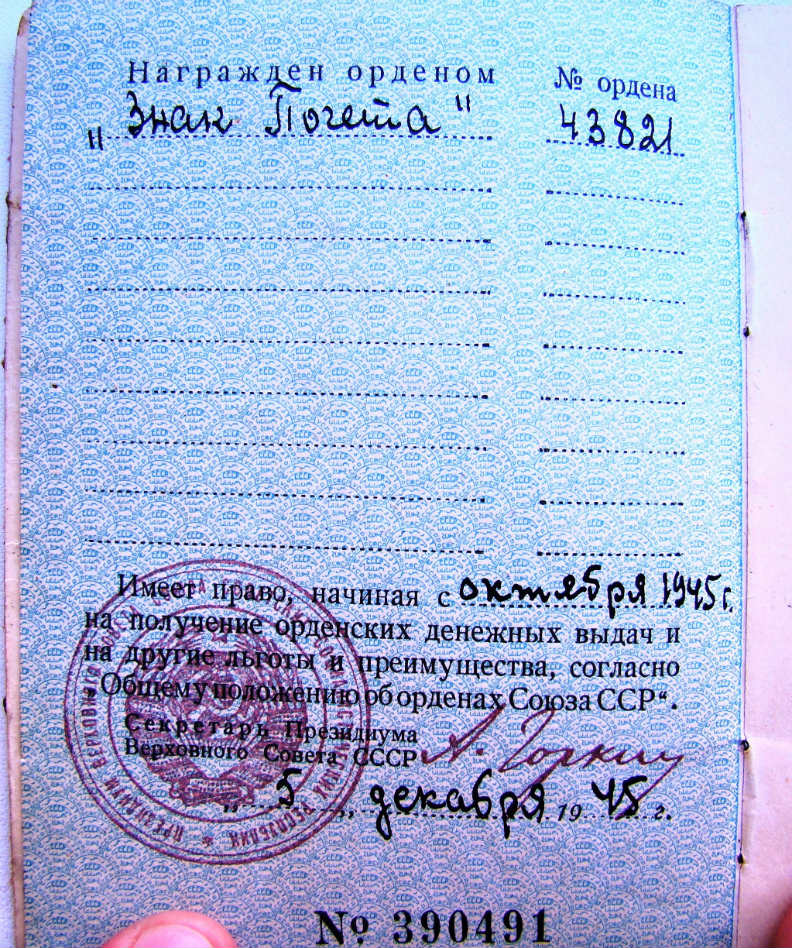 Награжден орденом № ордена
„Знак Почета" 43821
Имеет право, начиная с октября 1945 г.
на получение орденских денежных выдач и
на другие льготы и преимущества, согласно
„Общему положению об орденах Союза ССР“.
Секретарь Президиума
Верховного Совета СССР А. Горкин
„5„ декабря 1945 г.
№ 390491